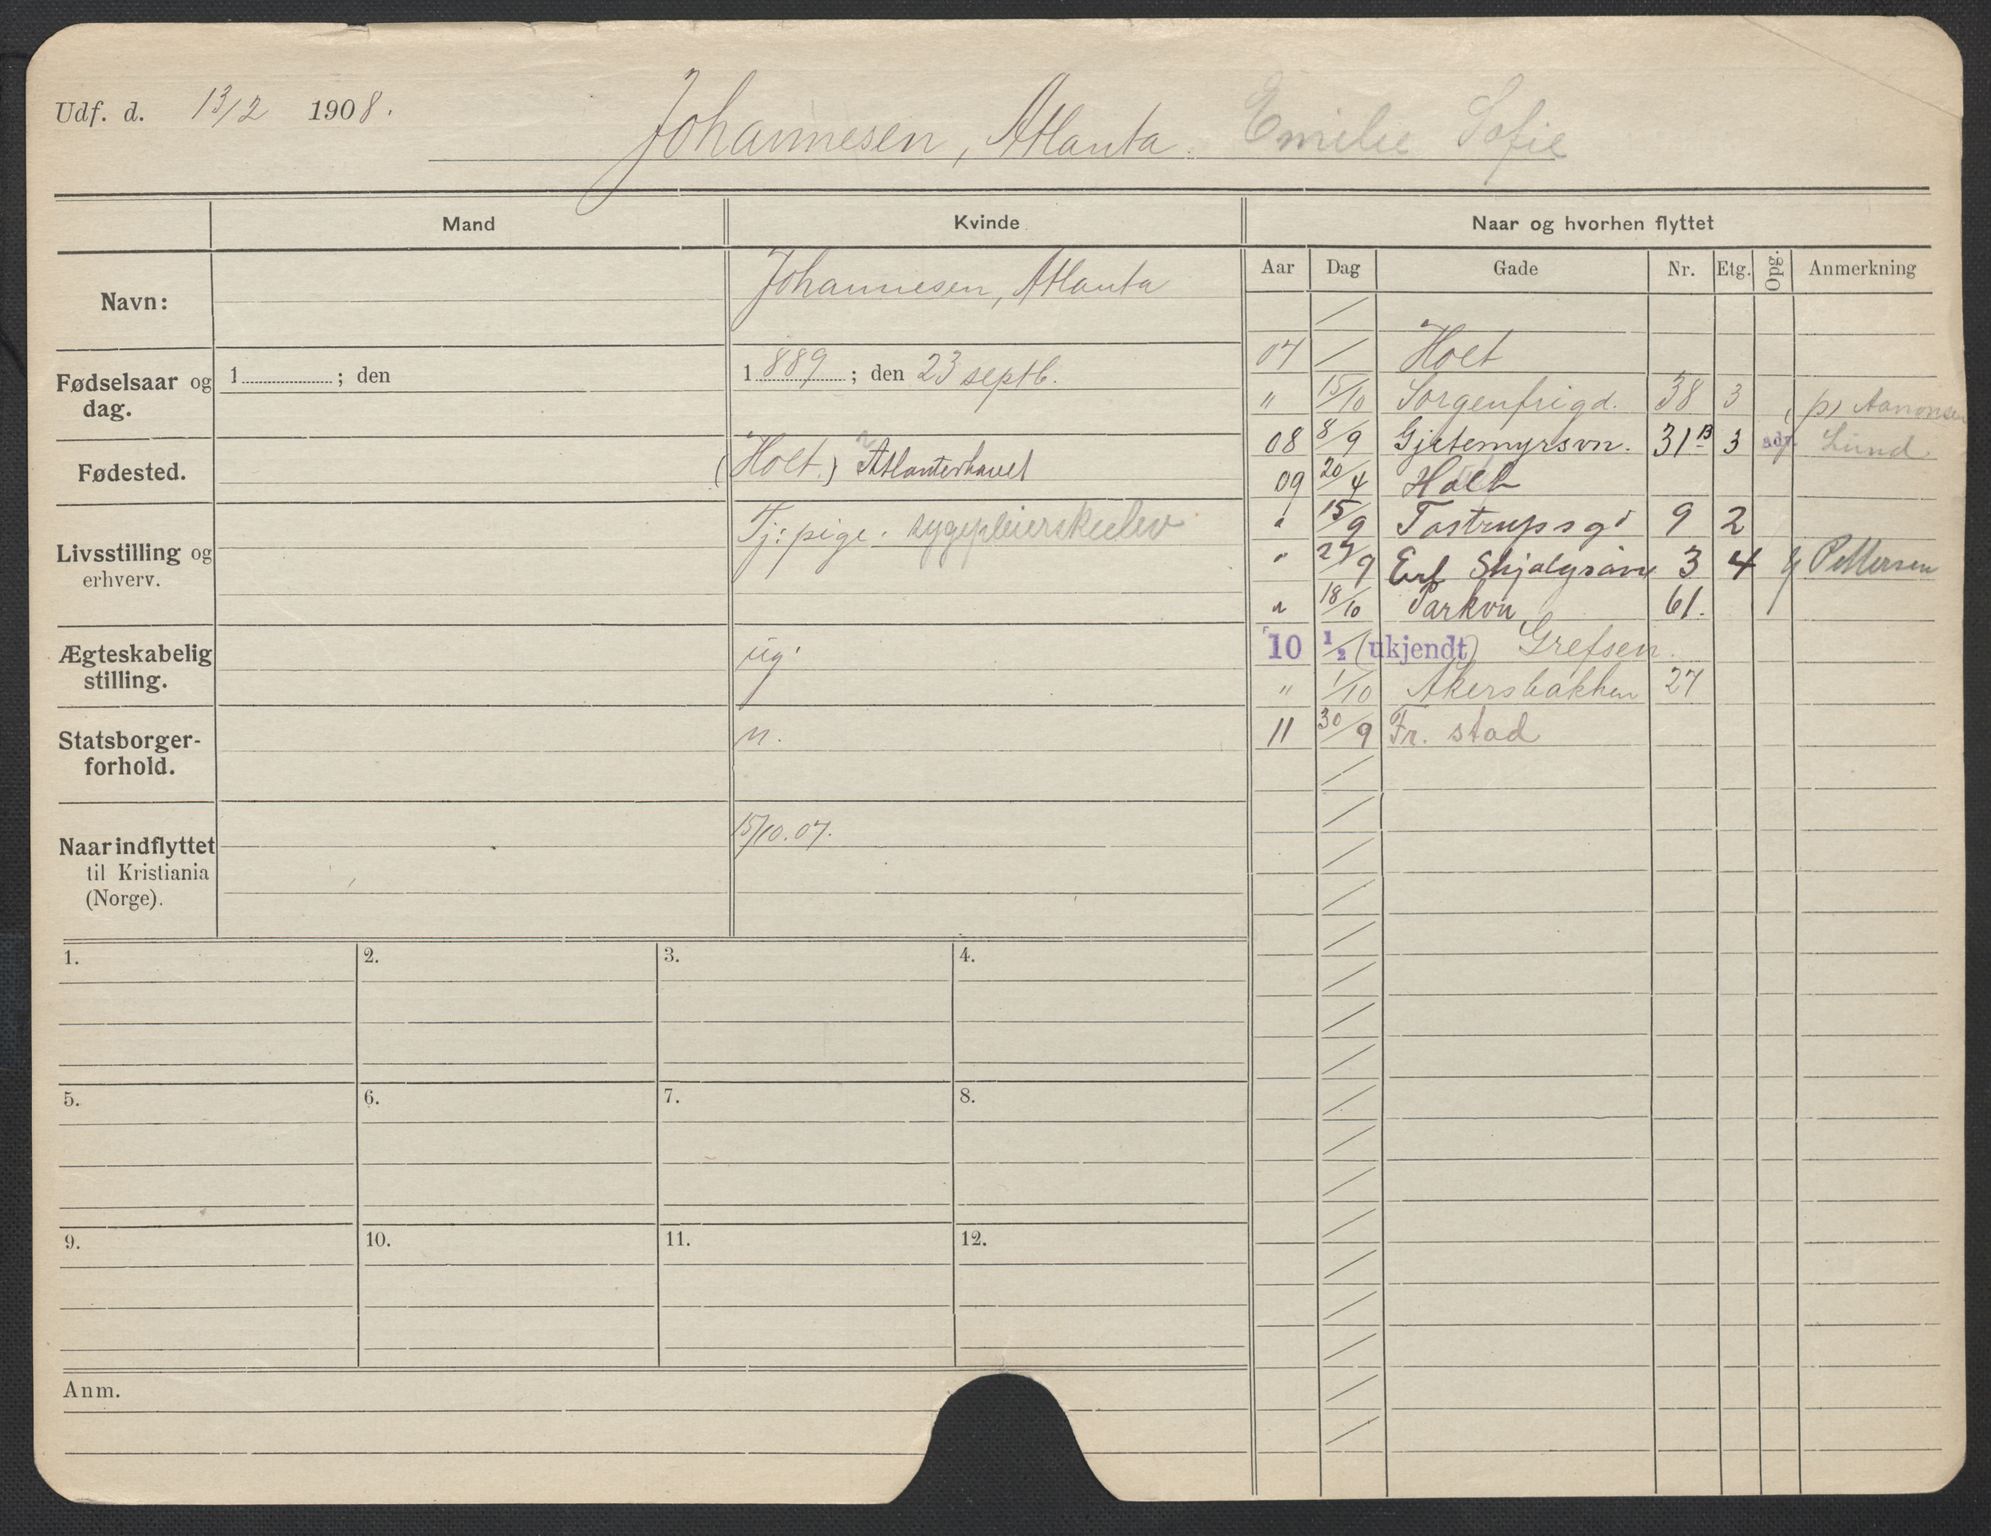 Udf. d. 13/2 1908.
Johannesen, Atlanta. Emilie Sofie
Mand Kvinde Naar og hvorhen flyttet
Aar Dag Gade Nr. Etg. Opg. Anmerkning
Navn: Johannesen, Atlanta
Fødselsaar og dag. 1 ; den 1889 ; den 23 septb.
Fødested. (Holt.) Atlanterhavet
Livsstilling og erhverv. Tj: pige. sygepleierskeelev
Ægteskabelig stilling. ug.
Statsborgerforhold. n.
Naar indflyttet til Kristiania (Norge). 15/10.07.
07 / Holt
" 15/10 Sorgenfrigd. 38 3 (p) Aanonsen
08 8/9 Gjetemyrsvn. 31B 3 adr. Lund
09 20/4 Holt
" 15/9 Tostrupsgd 9 2
" 27/9 Erl Skjalgsons 3 4 Pettersen
" 18/10 Parkvn 61.
10 1/2 (ukjendt) Grefsen.
" 1/10 Akersbakken 27
11 30/9 Fr. stad
1. 2. 3. 4.
5. 6. 7. 8.
9. 10. 11. 12.
Anm.